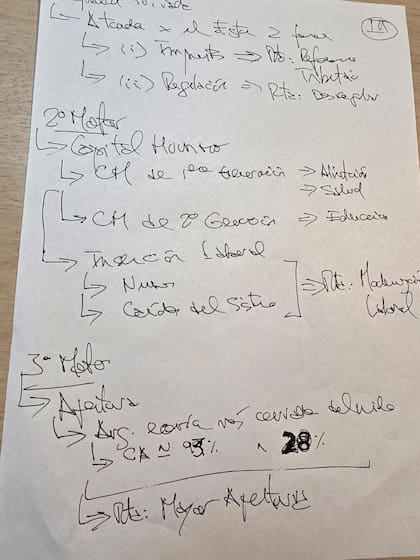 Atacada x el Estado 2 formas
(i) Impuestos ⇒ Rta: Reforma
Tributaria
(ii) Regulación ⇒ Rta: Desregular
2º Motor
Capital Humano
CH de 1ra Generación ⇒ Alimentación
⇒ Salud
CH de 2º Generación ⇒ Educación
Inserción Laboral
Nuevos
Caídos del Sistema
⇒ Rta: Modernización
Laboral
3º Motor
Apertura
Arg. economía más cerrada del mundo
CA ≈ 93% 28%
Rta: Mayor Apertura